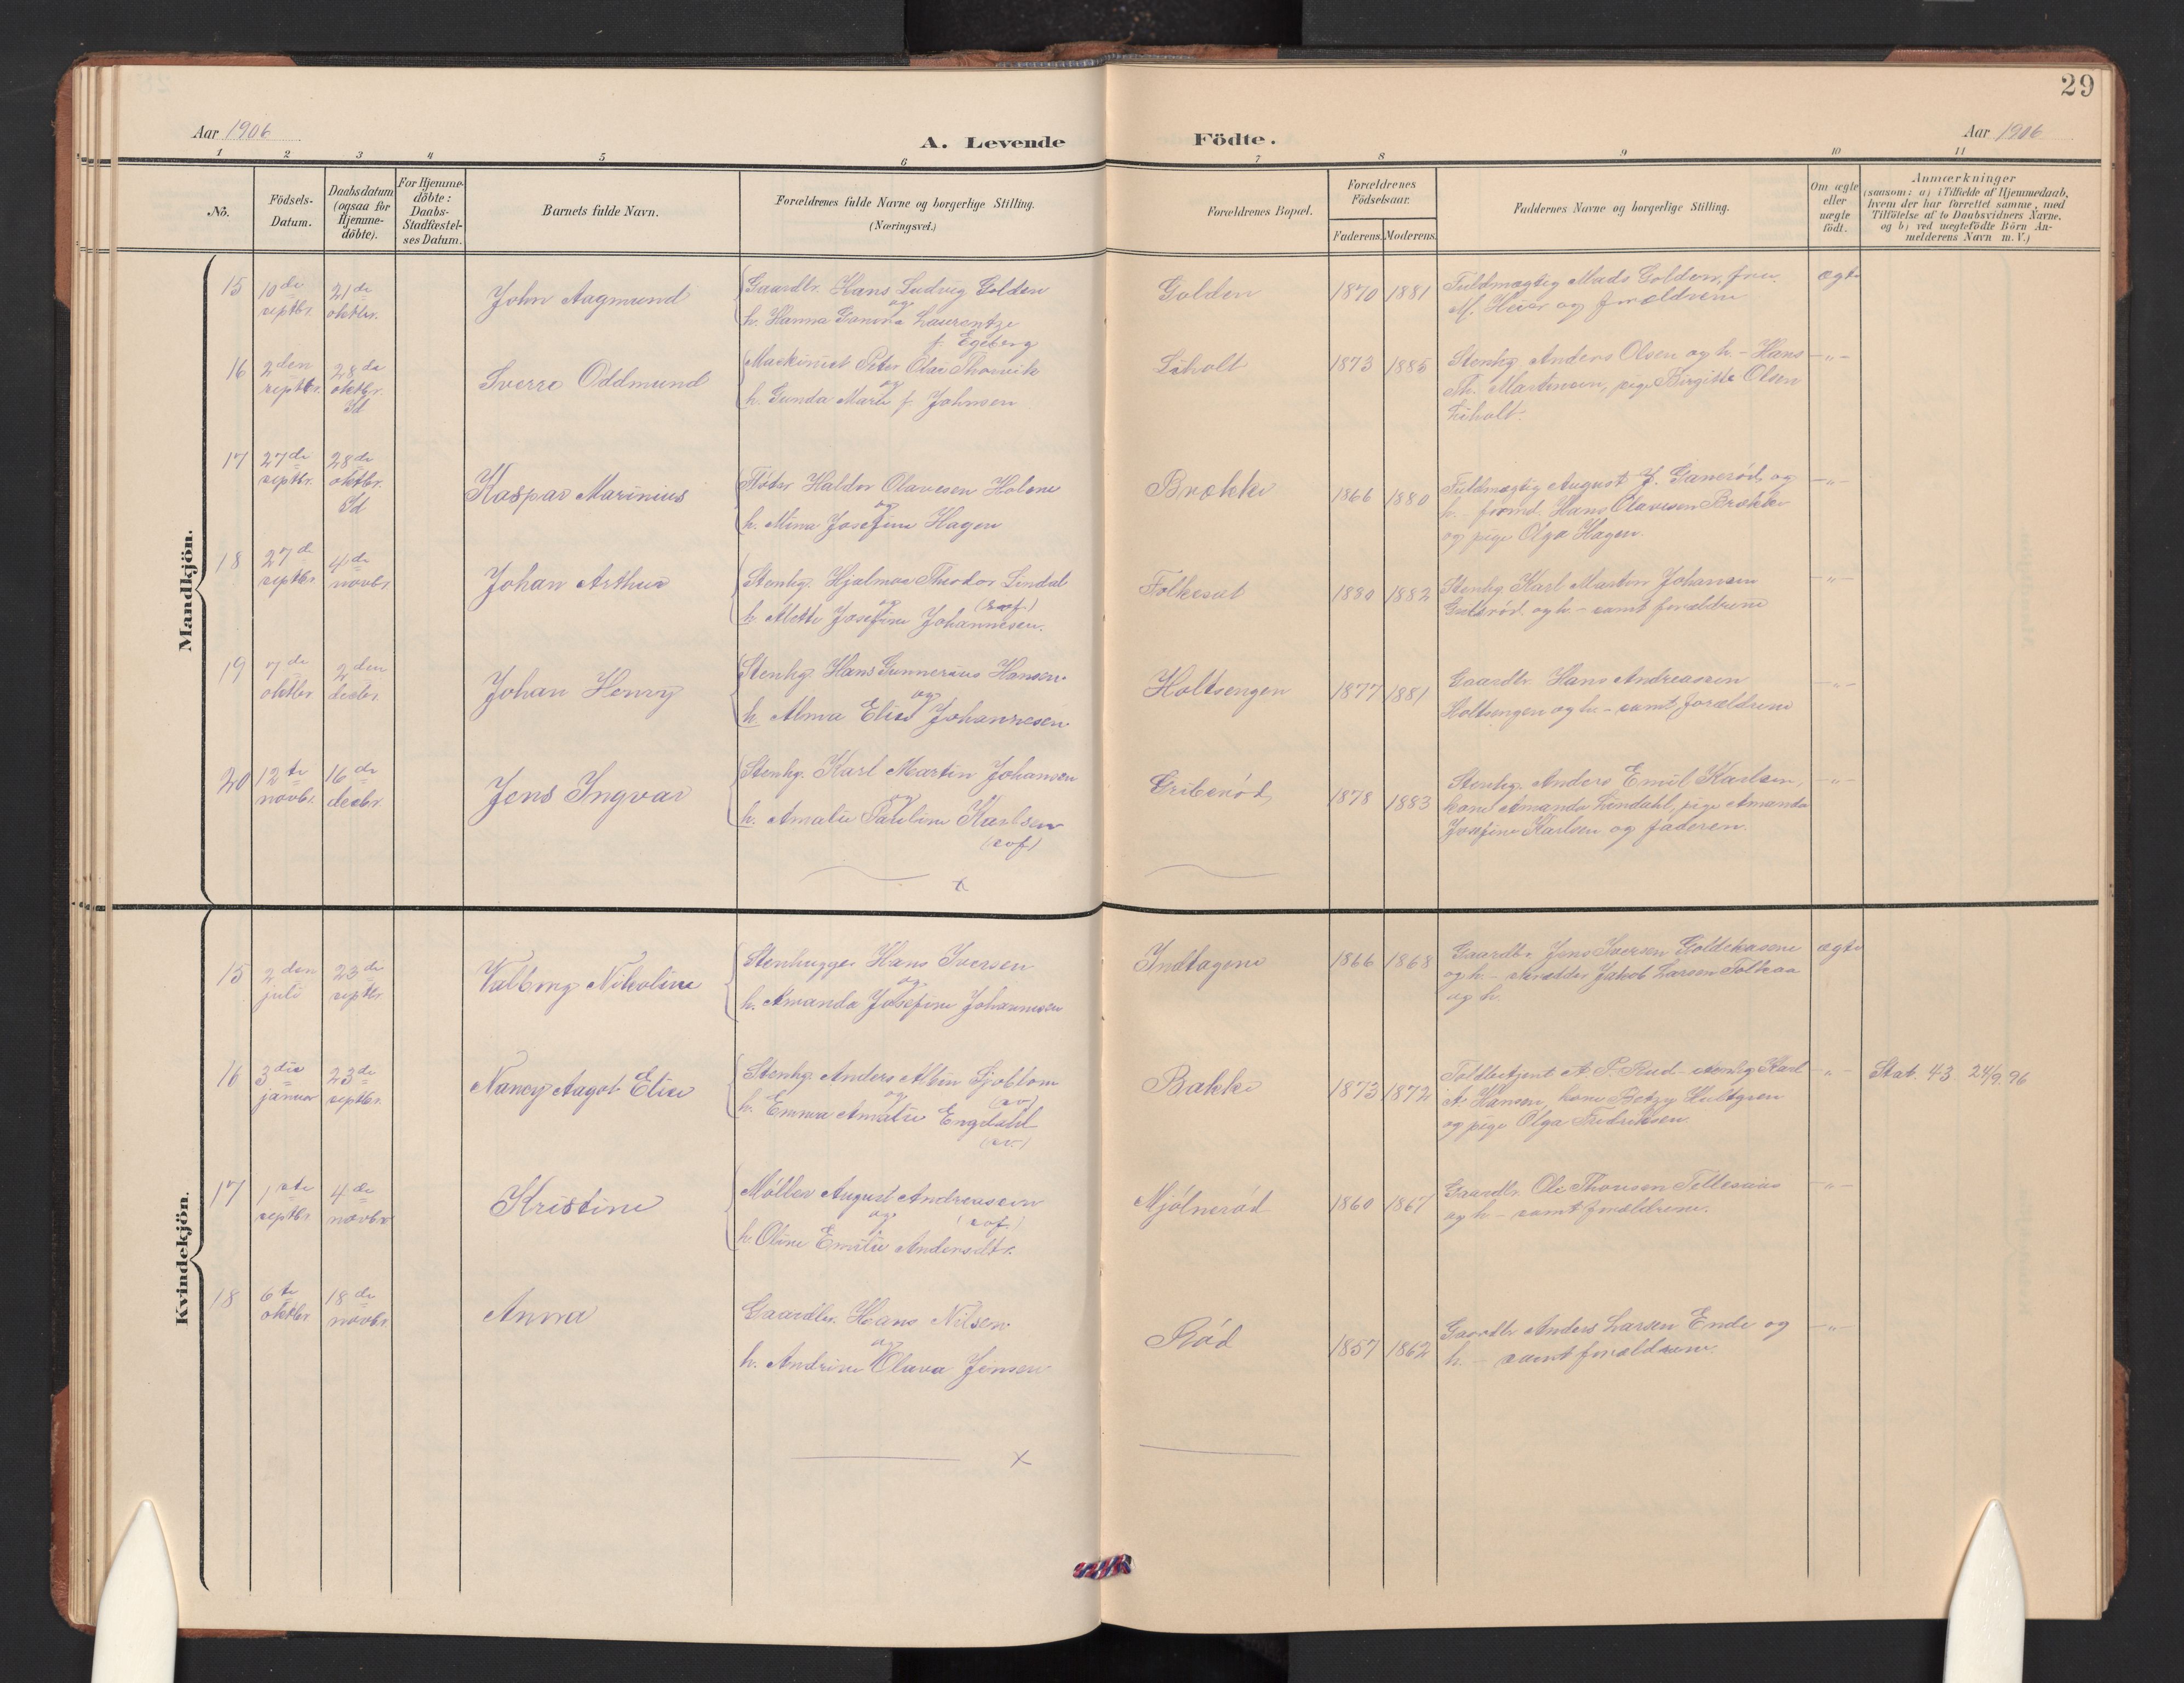 29
Aar 1906
A. Levende
Födte.
Aar 1906
1 2 3 4 5 6 7 8 9 10 11
No.
Födsels-
Datum.
Daabsdatum
(ogsaa for
Hjemme-
döbte).
For Hjemme-
döbte:
Daabs-
Stadfæstel-
ses Datum.
Barnets fulde Navn.
Forældrenes fulde Navne og borgerlige Stilling.
(Næringsvei.)
Forældrenes Bopæl.
Forældrenes
Födselsaar.
Faderens. Moderens.
Faddernes Navne og borgerlige Stilling.
Om ægte
eller
uægte
födt.
Anmærkninger
(saasom: a) i Tilfælde af Hjemmedaab,
hvem der har forrettet samme, med
Tilföielse af to Daabsvidners Navne,
og b) ved uægtefödte Börn An-
melderens Navn m. V.)
Mandkjön.
15
10de
septbr.
21de
oktbr.
John Aagmund
Gaardbr. Hans Ludvig Golden
og
h. Hanna Laurentze
f. Egeberg
Golden
1870 1881
Fuldmægtig Mads Golden, fru
M. Heier og forældrene
ægte
16
2den
septbr.
28de
oktbr.
Id
Sverre Oddmund
Maskinist Peter Olai Thorvik
og
h. Gunda Marie f. Johnsen
Liholt
1873 1885
Stenhg. Anders Olsen og h. - Hans
Th. Martinsen, pige Birgitte Olsen
Liholt.
-"-
17
27de
septbr.
28de
oktbr.
Id
Kaspar Marinius
Fløder Haldor Olavesen Holene
og
h. Mina Josefine Hagen
Brække
1866 1880
Fuldmægtig August J. Ganerød og
h. - Hans Olavesen Brække
og pige Olga Hagen.
-"-
18
27de
septbr.
4de
novbr.
Johan Arthur
Stenhg. Hjalmar Theodor Lindal
og
h. Alette Josefine Johannesen.
Folkesat
1880 1882
Stenhg. Karl Martin Johansen
og h. - samt forældrene
-"-
19
7de
oktbr.
2den
decbr.
Johan Henry
Stenhg. Hans Gunnerius Hansen
og
h. Alma Elise Johannesen
Holtsengen
1877 1881
Gaardbr. Hans Andreassen
Holtsengen og h. - samt forældrene
-"-
20
12te
novbr.
16de
decbr.
Jens Ingvar
Stenhg. Karl Martin Johansen
og
h. Amalie Pauline Karlsen
Griberød
1878 1883
Stenhg. Anders Emil Karlsen,
kone Amanda Lindahl, pige Amanda
Josefine Karlsen og faderen.
-"-
x
Kvindekjön.
15
2den
juli
23de
septbr.
Valborg Nikoline
Stenhugger Hans Iversen
og
h. Amanda Josefine Johannesen
Indtagene
1866 1868
Gaardbr. Jens Iversen Goldekasene
og h. - skrædder Jakob Larsen Folkaa
og h.
ægte
16
3die
januar
23de
septbr.
Nancy Aagot Elise
Stenhg. Anders Albin Sjoblom
og
(sv.)
h. Emma Amalie Engdahl
(sv.)
Bakke
1873 1872
Toldbetjent A. P. Rud - stenhg. Karl
A. Hansen, kone Betzy Hultgren
og pige Olga Fredriksen.
-"-
Stat. 43 24/9.96
17
1ste
septbr.
4de
novbr.
Kristine
Møller August Andreassen
og
h. Oline Emilie Andersdtr.
Mjølnerød
1860 1867
Gaardbr. Ole Thorsen
og h. - samt forældrene.
-"-
18
6te
oktbr.
18de
novbr.
Anna
Gaardbr. Hans Nilsen
og
h. Andrine Olava Jensen
Rød
1857 1862
Gaardbr. Anders Larsen Ende og
h. - samt forældrene.
-"-
x